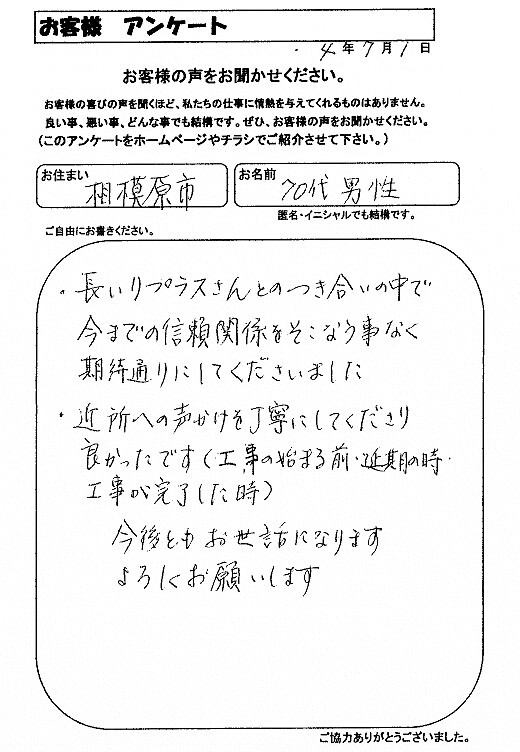 お客様 アンケート
4年7月1日
お客様の声をお聞かせください。
お客様の喜びの声を聞くほど、私たちの仕事に情熱を与えてくれるものはありません。
良い事、悪い事、どんな事でも結構です。ぜひ、お客様の声をお聞かせください。
(このアンケートをホームページやチラシでご紹介させて下さい。)
お住まい 相模原市
お名前 70代男性
匿名・イニシャルでも結構です。
ご自由にお書きください。
・長いリプラスさんとのつき合いの中で
今までの信頼関係をそこなう事なく
期待通りにしてくださいました
・近所への声かけを丁寧にしてくださり
良かったです(工事の始まる前・延期の時・
工事が完了した時)
今後ともお世話になります
よろしくお願いします
ご協力ありがとうございました。